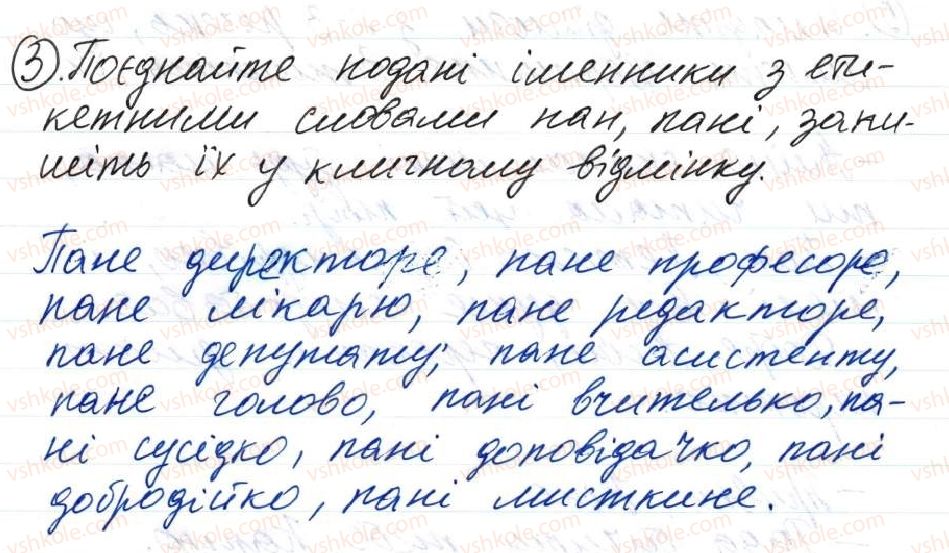 3. Поєднайте подані іменники з ети-
кетними словами пан, пані, запи-
шіть їх у кличному відмінку.
Пане директоре, пане професоре,
пане лікарю, пане редакторе,
пане депутату, пане асистенту,
пане голово, пані вчителько, па-
ні сусідко, пані доповідачко, пані
добродійко, пані мисткине.